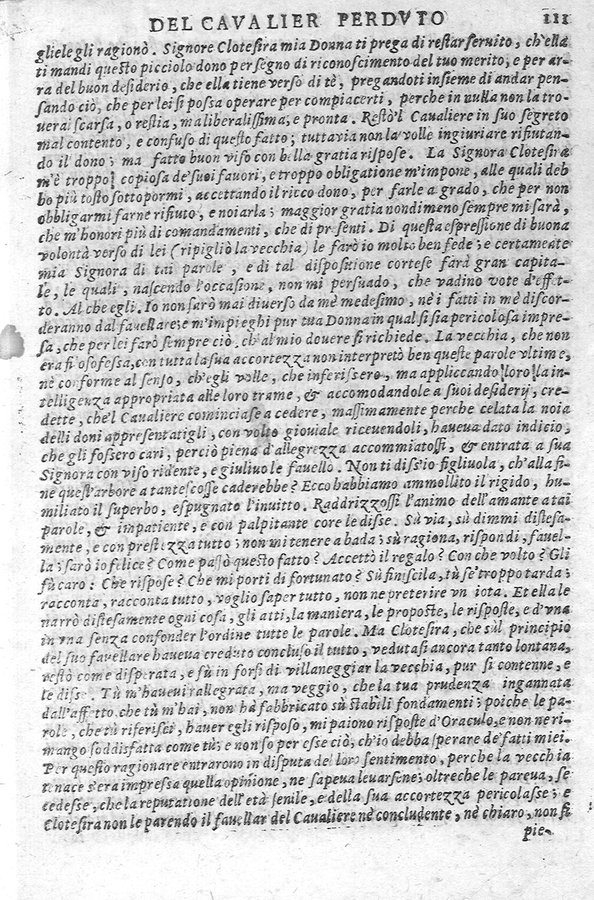 DEL CAVALIER PERDVTO 111
gliele gli ragionò. Signore Clotesira mia Donna ti prega di restar seruito, ch'ella
ti mandi questo picciolo dono per segno di riconoscimento del tuo merito; e per ar-
ra del buon desiderio, che ella tiene verso di tè, pregandoti insieme di andar pen-
sando ciò, che per lei si possa operare per compiacerti, perche in nulla non la tro-
uerai scarsa, o restia, ma liberalissima, e pronta. Restò'l Caualiere in suo segreto
mal contento, e confuso di questo fatto; tuttauia non la volle ingiuriare rifiutan-
do il dono; ma fatto buon viso con bella gratia rispose. La Signora Clotesira
m'è troppo copiosa de' suoi fauori, e troppo obligatione m'impone, alle quali deb
bo più tosto sottopormi, accettando il ricco dono, per farle a grado, che per non
obbligarmi farne rifiuto, e noiarla; maggior gratia nondimeno sempre mi sarà,
che m'honori più di comandamenti, che di presenti. Di questa espressione di buona
volontà verso di lei (ripigliò la vecchia) le farò io molto ben fede; e certamente
mia Signora di tai parole, e di tal dispositione cortese farà gran capita-
le, le quali, nascendo l'occasione, non mi persuado, che vadino vote d'effet-
to. Al che egli. Io non sarò mai diuerso da mè medesimo, nè i fatti in mè discor-
deranno dal fauellare; e m'impieghi pur tua Donna in qual si sia pericolosa impre-
sa, che per lei farò sempre ciò, ch'al mio douere si richiede. La vecchia, che non
era filosofessa, con tutta la sua accortezza non interpretò ben queste parole vltime,
nè conforme al senso, ch'egli volle, che inferissero, ma appliccando loro la in-
telligenza appropriata alle loro trame, & accomodandole a suoi desiderij, cre-
dette, che'l Caualiere cominciase a cedere, massimamente perche celata la noia
delli doni appresentatigli, con volto giouiale riceuendoli, haueua dato indicio,
che gli fossero cari, perciò piena d'allegrezza accommiatossi, & entrata a sua
Signora con viso ridente, e giuliuo le fauellò. Non ti diss'io figliuola, ch'alla fi-
ne quest'arbore a tante scosse caderebbe? Ecco habbiamo ammollito il rigido, hu-
miliato il superbo, espugnato l'inuitto. Raddrizzossi l'animo dell'amante a tai
parole, & impatiente, e con palpitante core le disse. Sù via, sù dimmi distesa-
mente, e con prestezza tutto; non mi tenere a bada; sù ragiona, rispondi, fauel-
la; sarò io felice? Come passò questo fatto? Accettò il regalo? Con che volto? Gli
fù caro? Che rispose? Che mi porti di fortunato? Sù finiscila, tù se' troppo tarda;
racconta, racconta tutto, voglio saper tutto, non ne preterire vn iota. Et ella le
narrò distesamente ogni cosa, gli atti, la maniera, le proposte, le risposte, e d'vna
in vna senza confonder l'ordine tutte le parole. Ma Clotesira, che sùl principio
del suo fauellare haueua creduto concluso il tutto, vedutasi ancora tanto lontana,
restò come disperata, e sù in forsi di villaneggiar la vecchia, pur si contenne, e
le disse. Tù m'haueui rallegrata, ma veggio, che la tua prudenza ingannata
dall'affetto che tù m'hai, non hà fabbricato sù stabili fondamenti; poiche le pa-
role, che tù riferisci, hauer egli risposo, mi paiono risposte d'Oracolo, e non ne ri-
mango soddisfatta come tù; e non so per esse ciò, ch'io debba sperare de' fatti miei.
Per questo ragionare entrarono in disputa del loro sentimento, perche la vecchia
tenace s'era impressa quella opinione, ne sapeua leuarsene; oltreche le pareua, se
cedesse, che la reputatione dell'età senile, e della sua accortezza pericolasse; e
Clotesira non le parendo il fauellar del Caualiere nè concludente, nè chiaro, non si
pie-